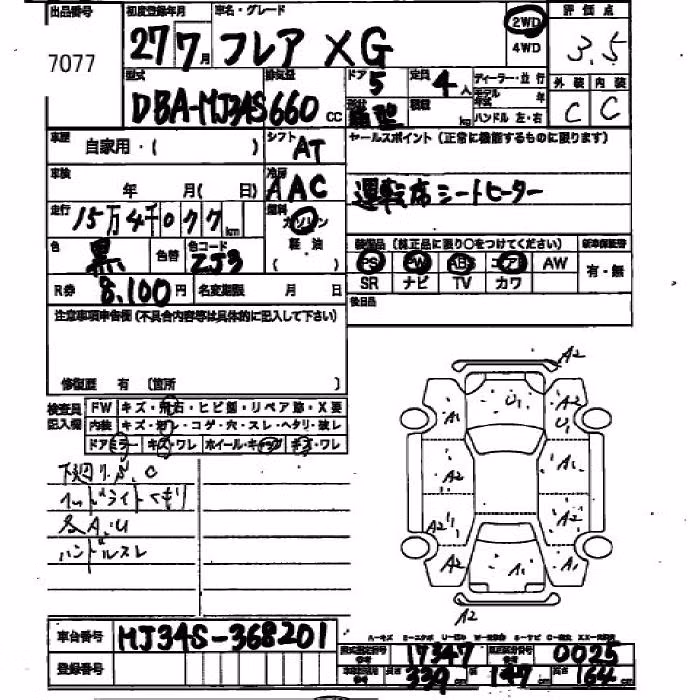 出品番号 初度登録年月 車名・グレード 評価点
7077 27 7月 フレア XG 2WD 4WD 3.5
型式 排気量 ドア 定員 ディーラー・並行 外装 内装
DBA-MJ34S 660 cc 5 4人 モデル年式 年 C C
形状 積載 kg ハンドル 左・右
車歴 自家用・( ) シフト AT セールスポイント (正常に機能するものに限ります)
車検 年 月( 日) 冷房 AAC 運転席シートヒーター
走行 15万4千077km 燃料 ガソリン
色 黒 色替 色コード ZJ3 軽油 ( )
装備品 (純正品に限り○をつけてください) 新車保証書
PS PW ABS エアB AW 有・無
SR ナビ TV カワ
R券 8,100円 名変期限 月 日 後日品
注意事項申告欄 (不具合内容等は具体的に記入して下さい)
修復歴 有 〔箇所 〕
検査員記入欄 FW キズ・飛石・ヒビ割・リペア跡・X要
内装 キズ・汚れ・コゲ・穴・スレ・ヘタリ・破レ
ドアミラー キズ・ワレ ホイール・キャップ キズ・ワレ
下廻りS.C
ヘッドライトくもり
各A.U
ハンドルスレ
A2
A1 U1 A2 U
A2 A1
A2 A2
A2 A1 A1
A2
車台番号 MJ34S-368201
登録番号
型式指定番号 17347 類別区分番号 0025
長さ 339cm 幅 147cm 高さ 164cm